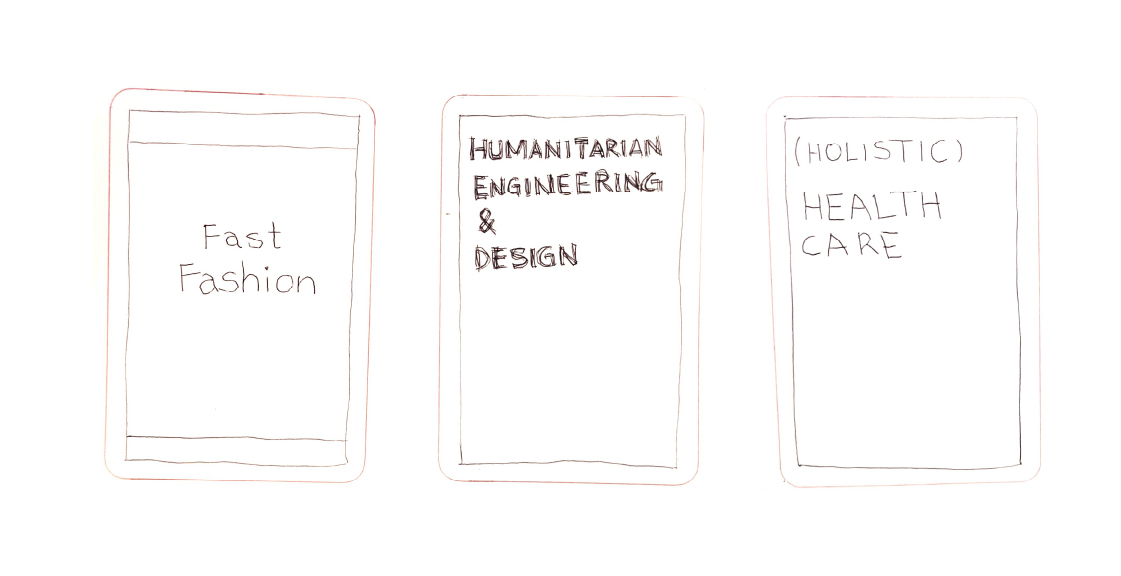 Fast
Fashion
HUMANITARIAN
ENGINEERING
&
DESIGN
(HOLISTIC)
HEALTH
CARE